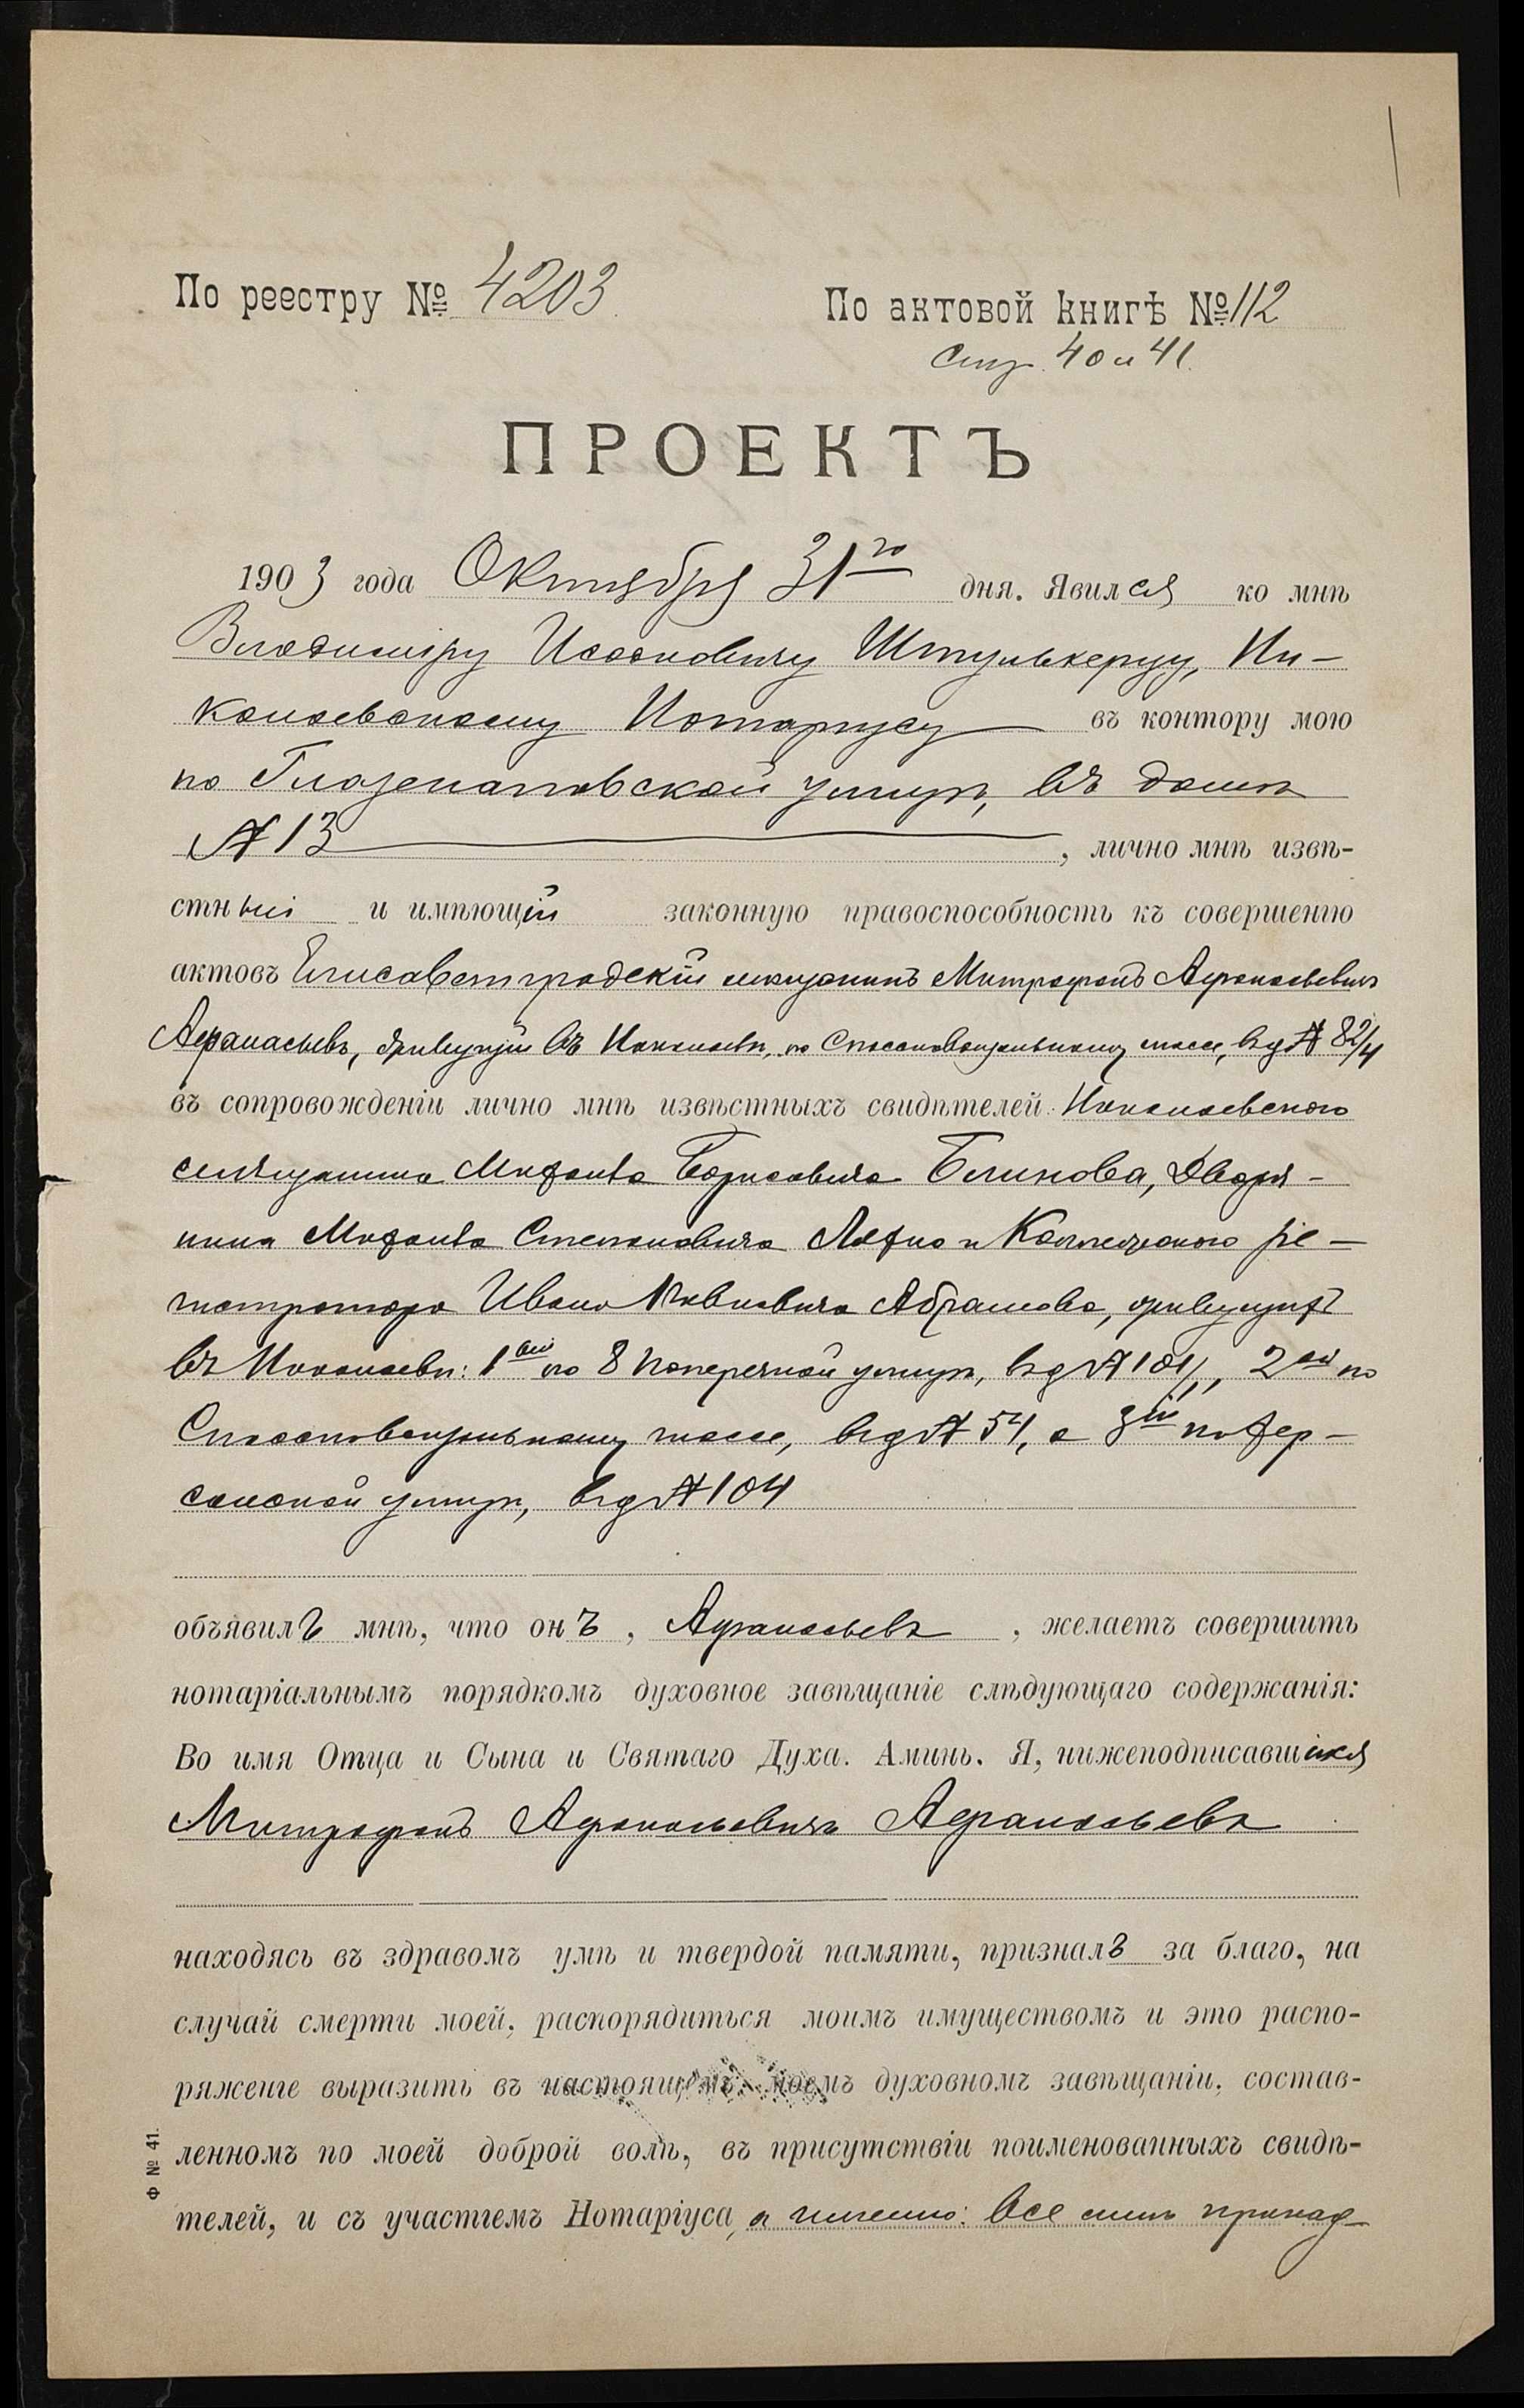 По реестру № 4203
По актовой книгѣ № 112
Стр. 40 и 41.
ПРОЕКТЪ
1903 года Октября 31го дня. Явился ко мнѣ
Владиміру Исааковичу Штулькерцу, Ни-
колаевскому Нотаріусу въ контору мою
по Глазенаповской улицѣ, въ домѣ
№ 13, лично мнѣ извѣ-
стный и имѣющій законную правоспособность къ совершенію
актовъ Елисаветградскій мѣщанинъ Митрофанъ Афанасьевичъ
Афанасьевъ, живущій въ Николаевѣ, по Спассковокзальному шоссе, въ д № 82/4
въ сопровожденіи лично мнѣ извѣстныхъ свидѣтелей: Николаевскаго
мѣщанина Михаила Борисовича Блинова, Дворя-
нина Михаила Степановича и Коллежскаго ре-
гистратора Ивана Абрамова, живущихъ
въ Николаевѣ: 1ый по 8 Поперечной улицѣ, въ д № 2ой по
Спассковокзальному шоссе, въ д № 54, а 3ій по Хер-
сонской улицѣ, въ д № 104
объявилъ мнѣ, что онъ, Афанасьевъ, желаетъ совершить
нотаріальнымъ порядкомъ духовное завѣщаніе слѣдующаго содержанія:
Во имя Отца и Сына и Святаго Духа. Аминь. Я, нижеподписавшійся
Митрофанъ Афанасьевичъ Афанасьевъ
находясь въ здравомъ умѣ и твердой памяти, призналъ за благо, на
случай смерти моей, распорядиться моимъ имуществомъ и это распо-
ряженіе выразить въ настоящемъ моемъ духовномъ завѣщаніи, состав-
ленномъ по моей доброй волѣ, въ присутствіи поименованныхъ свидѣ-
телей, и съ участіемъ Нотаріуса, а именно: Все мнѣ принад-
Ф № 41.